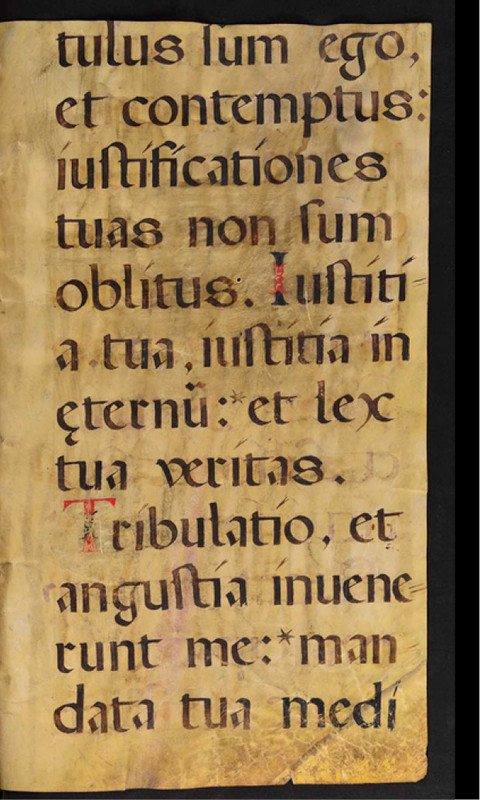 tulus ſum ego,
et contemptus:
iuſtificationes
tuas non ſum
oblitus. Iuſtiti=
a tua, iuſtitia in
ęternũ:*et lex
tua veritas.
Tribulatio, et
anguſtia inuene=
runt me:*man
data tua medi